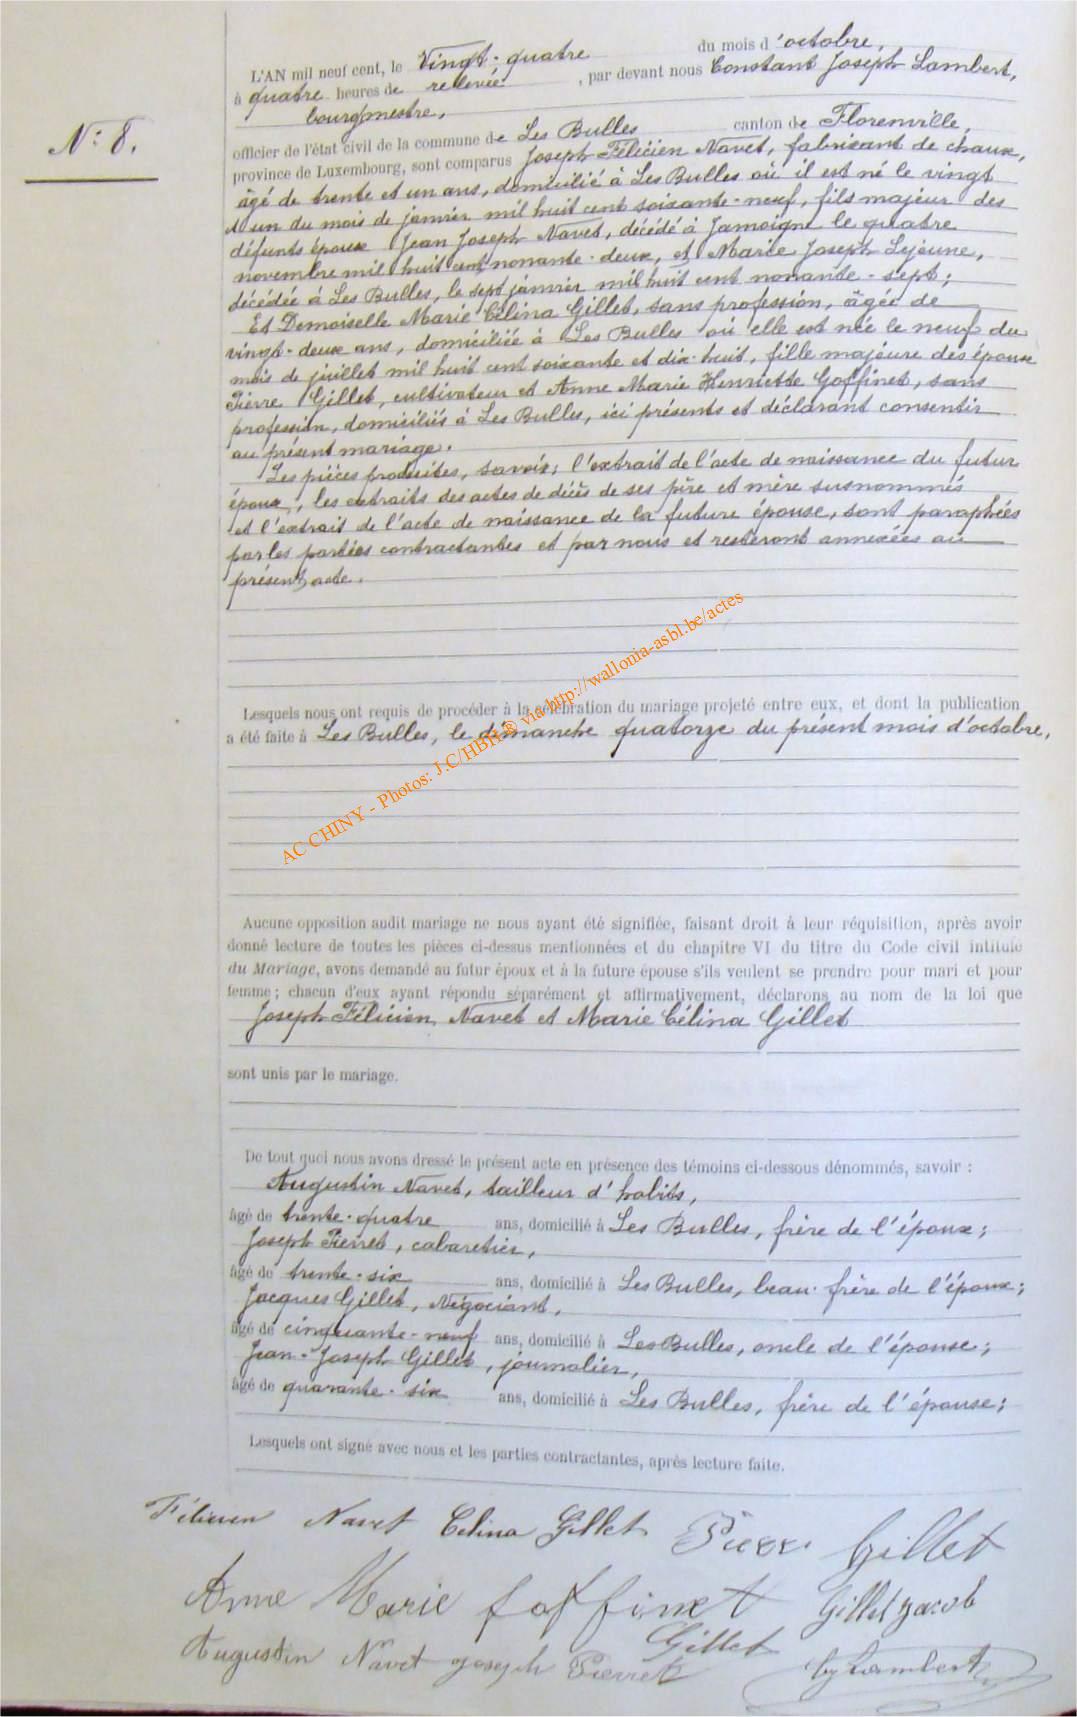 L'AN mil neuf cent, le Vingt-quatre du mois d'octobre,
à quatre heures de relevée, par devant nous Constant Joseph Lambert,
bourgmestre,
N° 8.
officier de l'état civil de la commune de Les Bulles canton de Florenville,
province de Luxembourg, sont comparus Joseph Félicien Navet, fabricant de chaux,
âgé de trente et un ans, domicilié à Les Bulles où il est né le vingt
et un du mois de janvier mil huit cent soixante-neuf, fils majeur des
défunts époux Jean Joseph Navet, décédé à Jamoigne le quatre
novembre mil huit cent nonante-deux, et Marie Joseph Lejeune,
décédée à Les Bulles, le sept janvier mil huit cent nonante-sept;
Et Demoiselle Marie Célina Gillet, sans profession, âgée de
vingt-deux ans, domiciliée à Les Bulles où elle est née le neuf du
mois de juillet mil huit cent soixante et dix-huit, fille majeure des époux
Pierre Gillet, cultivateur et Anne Marie Henriette Goffinet, sans
profession, domiciliés à Les Bulles, ici présents et déclarant consentir
au présent mariage.
Les pièces produites, savoir: l'extrait de l'acte de naissance du futur
époux, les extraits des actes de décès de ses père et mère susnommés
et l'extrait de l'acte de naissance de la future épouse, sont paraphées
par les parties contractantes et par nous et resteront annexées au
présent acte.
Lesquels nous ont requis de procéder à la célébration du mariage projeté entre eux, et dont la publication
a été faite à Les Bulles, le dimanche quatorze du présent mois d'octobre,
AC CHINY - Photos: J.C/HBH® via http://wallonia-asbl.be/actes
Aucune opposition audit mariage ne nous ayant été signifiée, faisant droit à leur réquisition, après avoir
donné lecture de toutes les pièces ci-dessus mentionnées et du chapitre VI du titre du Code civil intitulé
du Mariage, avons demandé au futur époux et à la future épouse s'ils veulent se prendre pour mari et pour
femme; chacun d'eux ayant répondu séparément et affirmativement, déclarons au nom de la loi que
Joseph Félicien Navet et Marie Célina Gillet
sont unis par le mariage.
De tout quoi nous avons dressé le présent acte en présence des témoins ci-dessous dénommés, savoir :
Augustin Navet, tailleur d'habits,
âgé de trente-quatre ans, domicilié à Les Bulles, frère de l'époux;
Joseph Pierret, cabaretier,
âgé de trente-six ans, domicilié à Les Bulles, beau-frère de l'époux;
Jacques Gillet, Négociant,
âgé de cinquante-neuf ans, domicilié à Les Bulles, oncle de l'épouse;
Jean-Joseph Gillet, journalier,
âgé de quarante-six ans, domicilié à Les Bulles, frère de l'épouse;
Lesquels ont signé avec nous et les parties contractantes, après lecture faite.
Félicien Navet Celina Gillet Pierre Gillet
Anne Marie Goffinet Gillet Jacob
Gillet
Augustin Navet Joseph Pierret Lambert